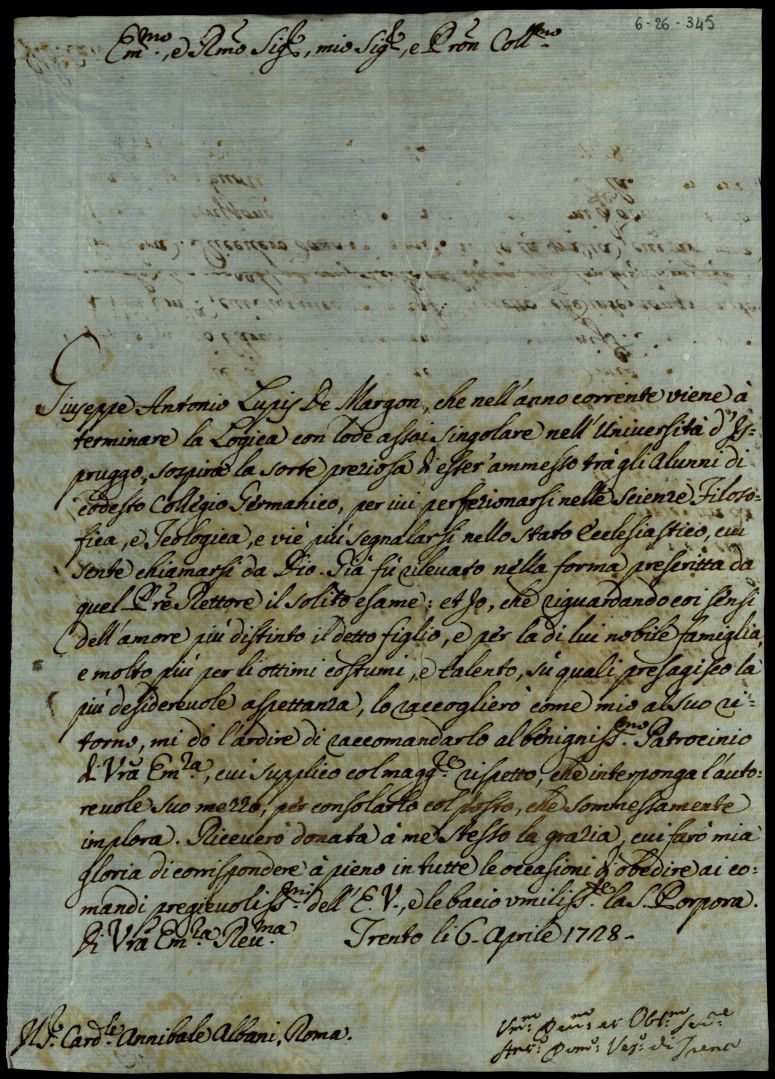 6-26-345
Em.mo, e Rmo Sig.r, mio Sig.r, e Pron Coll.mo
Giuseppe Antonio Lupis De Margon, che nell'anno corrente viene à
terminare la Logica con lode assai singolare nell'Università d'Ys-
pruggo, sospira la sorte preziosa di esser'ammesso trà gli Alunni di
codesto Collegio Germanico, per ivi perfezionarsi nelle Scienze Filoso-
fica, e Teologica, e vie più segnalarsi nello stato Ecclesiastico, cui
sente chiamarsi da Dio. Già fù rilevato nella forma prescritta da
quel Pre Rettore il solito esame: et Io, che riguardando coi sensi
dell'amore più distinto il detto figlio, e per la di lui nobile famiglia,
e molto più per li ottimi costumi, e talento, sù quali presagisco la
più desiderevole aspettanza, lo raccoglierò come mio al suo ri-
torno, mi dò l'ardire di raccomandarlo al benigniss.mo Patrocinio
di Vra Em.za, cui supplico col magg.re rispetto, che interponga l'auto-
revole suo mezzo, per consolarlo col posto, che sommessamente
implora. Riceverò donata à me stesso la grazia, cui farò mia
gloria di corrispondere à pieno in tutte le occasioni d'obedire ai co-
mandi pregievoliss.mi dell'E. V., e le bacio umiliss.te la S. Porpora.
Di Vra Em.za Rev.ma Trento li 6. Aprile 1728.
Card.le Annibale Albani, Roma.
Um.mo Dev.mo et Obl.mo Ser.re
Ant.o Dom.o Ves.o di Trento